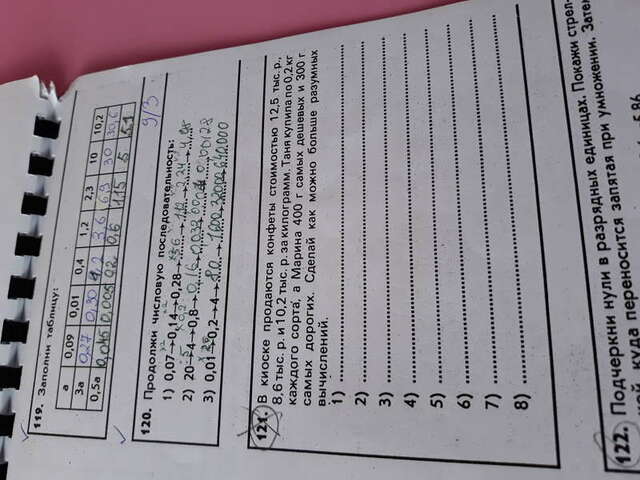 119. Заполни таблицу:
а 0,09 0,01 0,4 1,2 2,3 10 10,2
3а 0,27 1,2 3,6 6,9 30 30,6
0,5а 0,045 0,005 0,2 0,6 1,15 5 5,1
120. Продолжи числовую последовательность: д/з
1) 0,07→0,14→0,28→
2) 20→4→0,8→0,16
3) 0,01→0,2→4→
121. В киоске продаются конфеты стоимостью 12,5 тыс. р.,
8,6 тыс. р. и 10,2 тыс. р. за килограмм. Таня купила по 0,2 кг
каждого сорта, а Марина 400 г самых дешевых и 300 г
самых дорогих. Сделай как можно больше разумных
вычислений.
1)
2)
3)
4)
5)
6)
7)
8)
122. Подчеркни нули в разрядных единицах. Покажи стрел-
куда переносится запятая при умножении. Зате